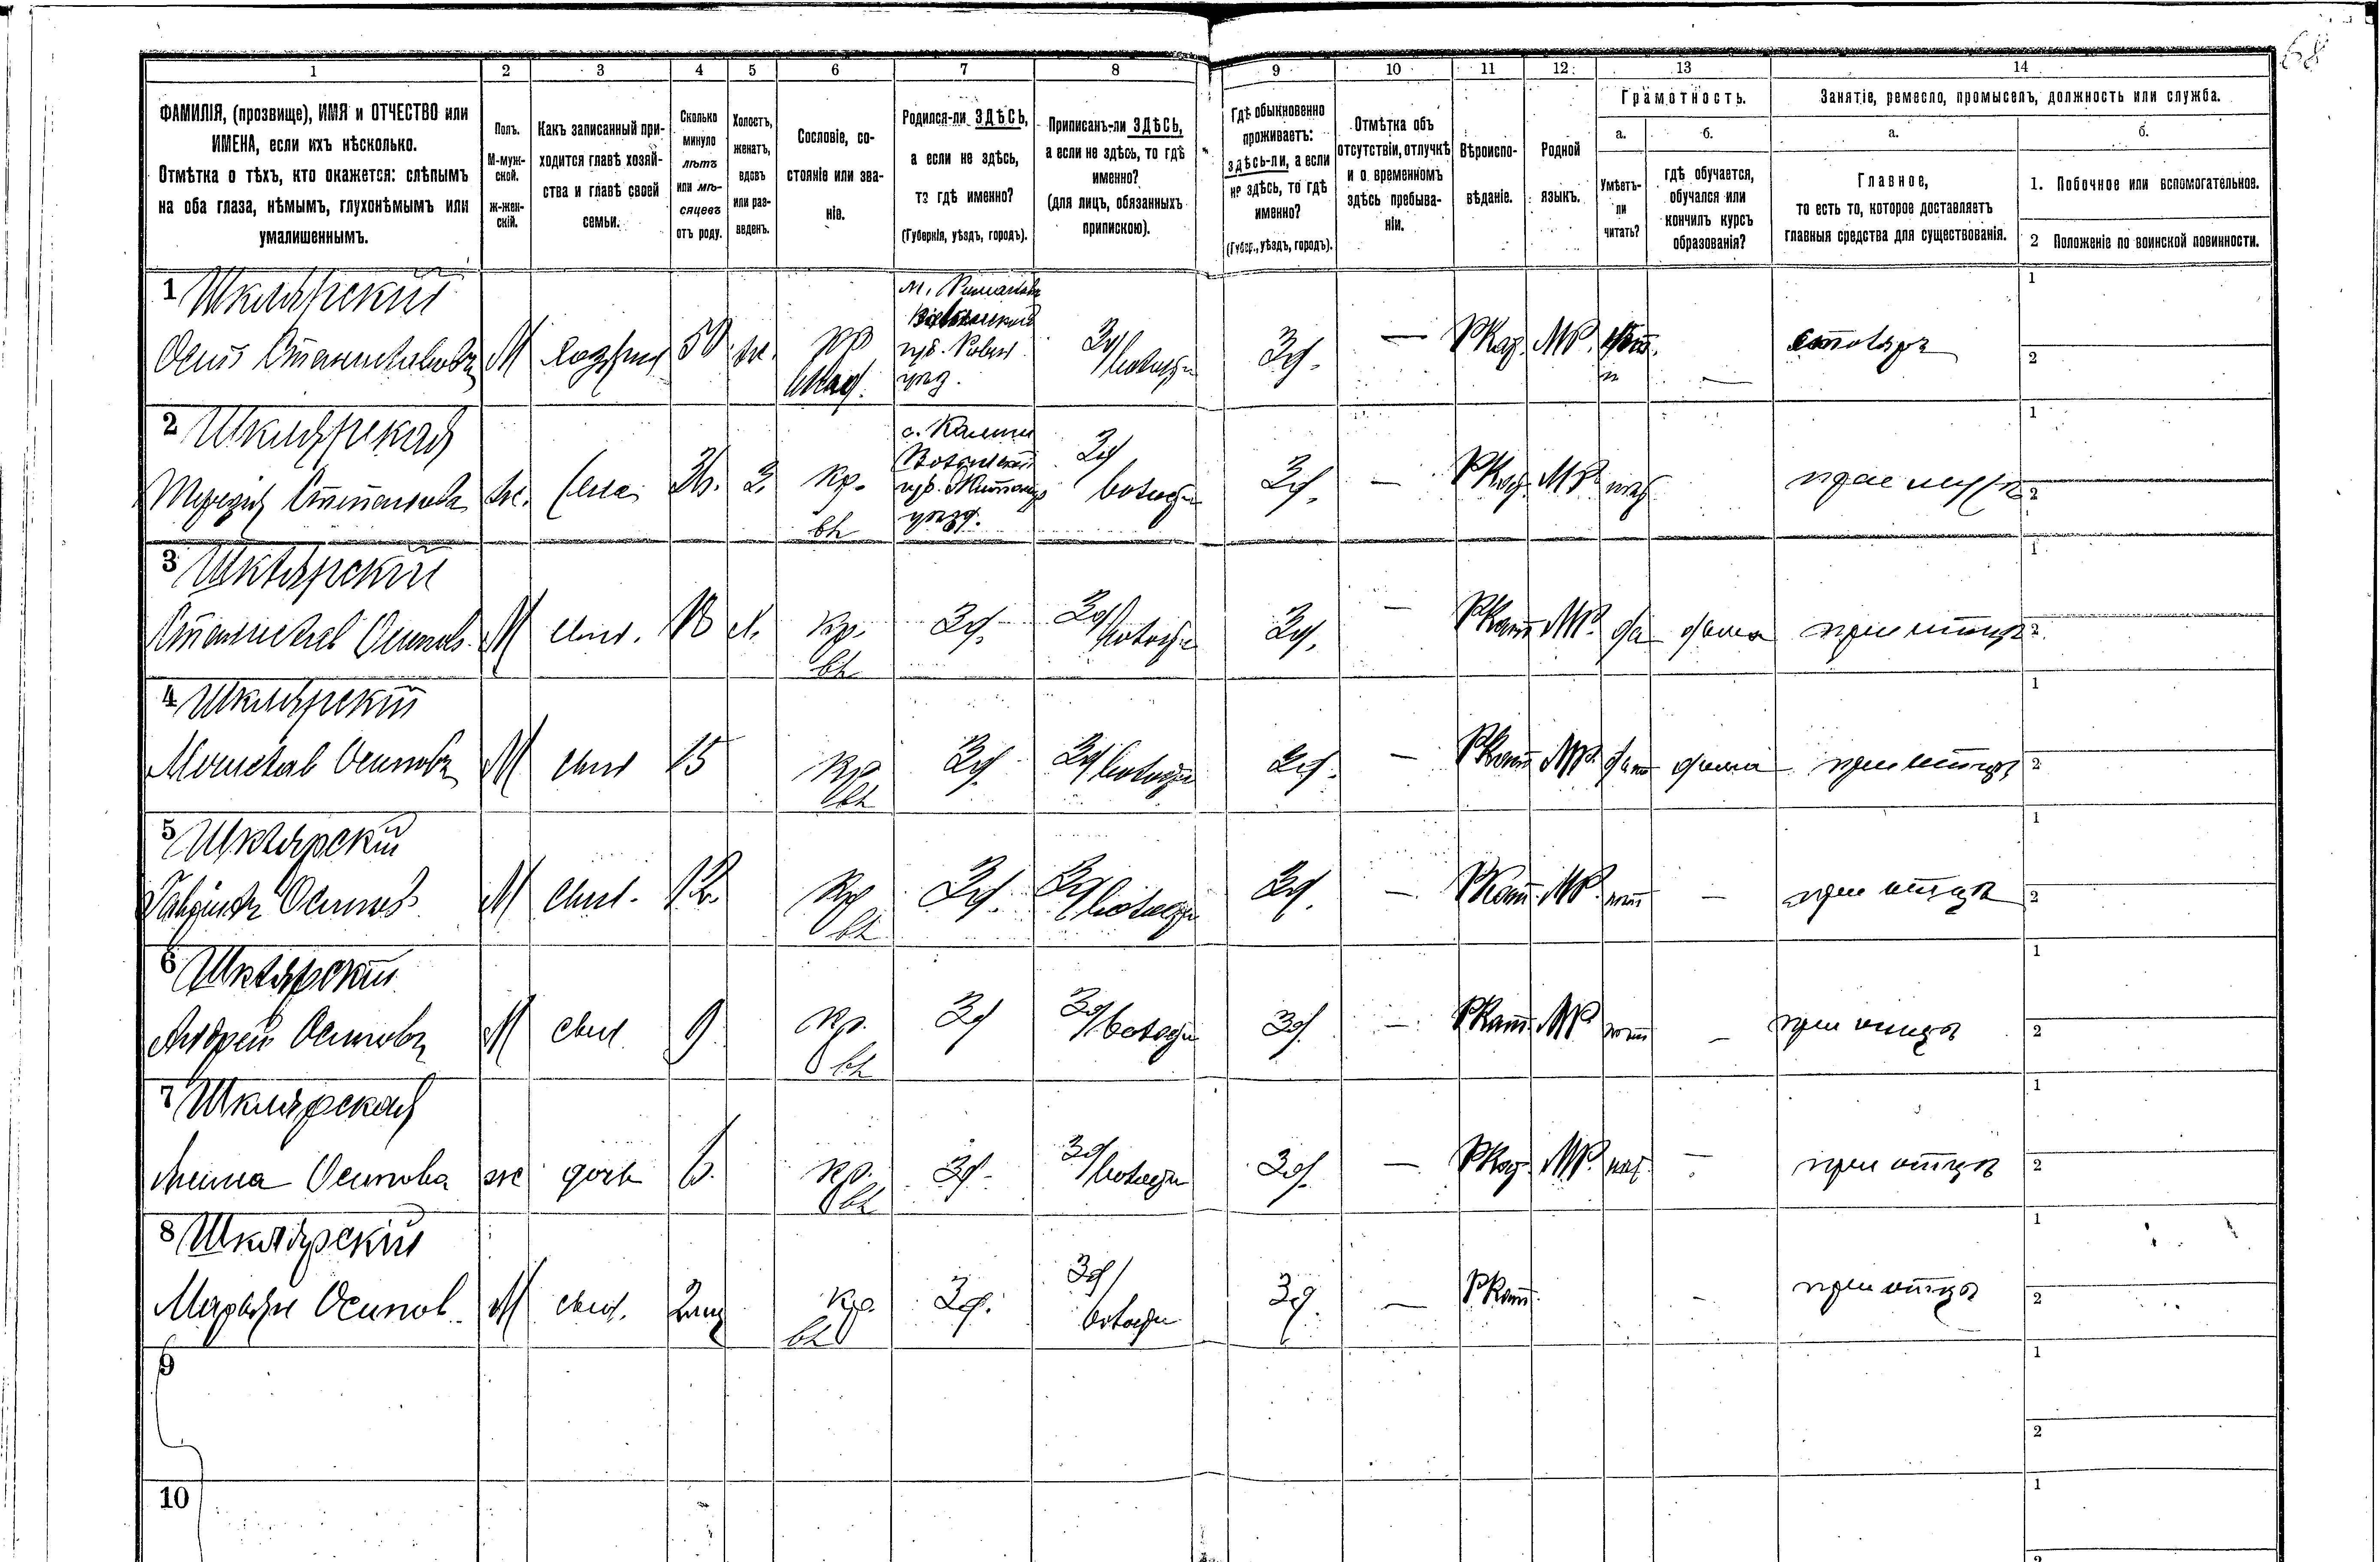 68
1 2 3 4 5 6 7 8 9 10 11 12 13 14
ФАМИЛІЯ, (прозвище), ИМЯ и ОТЧЕСТВО или
ИМЕНА, если ихъ нѣсколько.
Отмѣтка о тѣхъ, кто окажется: слѣпымъ
на оба глаза, нѣмымъ, глухонѣмымъ или
умалишеннымъ.
Полъ.
М-муж-
ской.
Ж-жен-
скій.
Какъ записанный при-
ходится главѣ хозяй-
ства и главѣ своей
семьи.
Сколько
минуло
лѣтъ
или мѣ-
сяцевъ
отъ роду.
Холостъ,
женатъ,
вдовъ
или раз-
веденъ.
Сословіе, со-
стояніе или зва-
ніе.
Родился-ли ЗДѢСЬ,
а если не здѣсь,
то гдѣ именно?
(Губернія, уѣздъ, городъ).
Приписанъ-ли ЗДѢСЬ,
а если не здѣсь, то гдѣ
именно?
(для лицъ, обязанныхъ
припискою).
Гдѣ обыкновенно
проживаетъ:
здѣсь-ли, а если
не здѣсь, то гдѣ
именно?
(Губер., уѣздъ, городъ).
Отмѣтка объ
отсутствіи, отлучкѣ
и о временномъ
здѣсь пребыва-
ніи.
Вѣроиспо-
вѣданіе.
Родной
языкъ.
Грамотность.
а.
Умѣетъ-
ли
читать?
б.
гдѣ обучается,
обучался или
кончилъ курсъ
образованія?
Занятіе, ремесло, промыселъ, должность или служба.
а.
Главное,
то есть то, которое доставляетъ
главныя средства для существованія.
б.
1. Побочное или вспомогательное.
2 Положеніе по воинской повинности.
1 Шклярский
Осип Станиславовъ М 50 ж. Зд. — столяръ
1
2
2 Шклярская
Степанова ж. жена З. кр. Зд. —
1
2
3 Шклярский
Станислав Осипов М сын. 18 х. кр. Зд. Зд. — РКат МР. да дома при отцѣ
1
2
4 Шклярскій
Осиповъ М сын 15 кр Зд. Зд. — РКат МР. дома при отцѣ
1
2
5 Шклярскій
Осипов М сын. 12 кр Зд. Зд. — РКат. МР. нѣт — при отцѣ
1
2
6 Шклярскій
Андрей Осиповъ М сын 9 кр. Зд Зд. — РКат. МР нѣт — при отцѣ
1
2
7 Шклярская
Анна Осипова ж дочь 6. кр. Зд. Зд. — МР. — при отцѣ
1
2
8 Шклярский
Марьян Осипов М сын. кр. Зд. Зд. — РКат. — при отцѣ
1
2
9
1
2
10
1
2